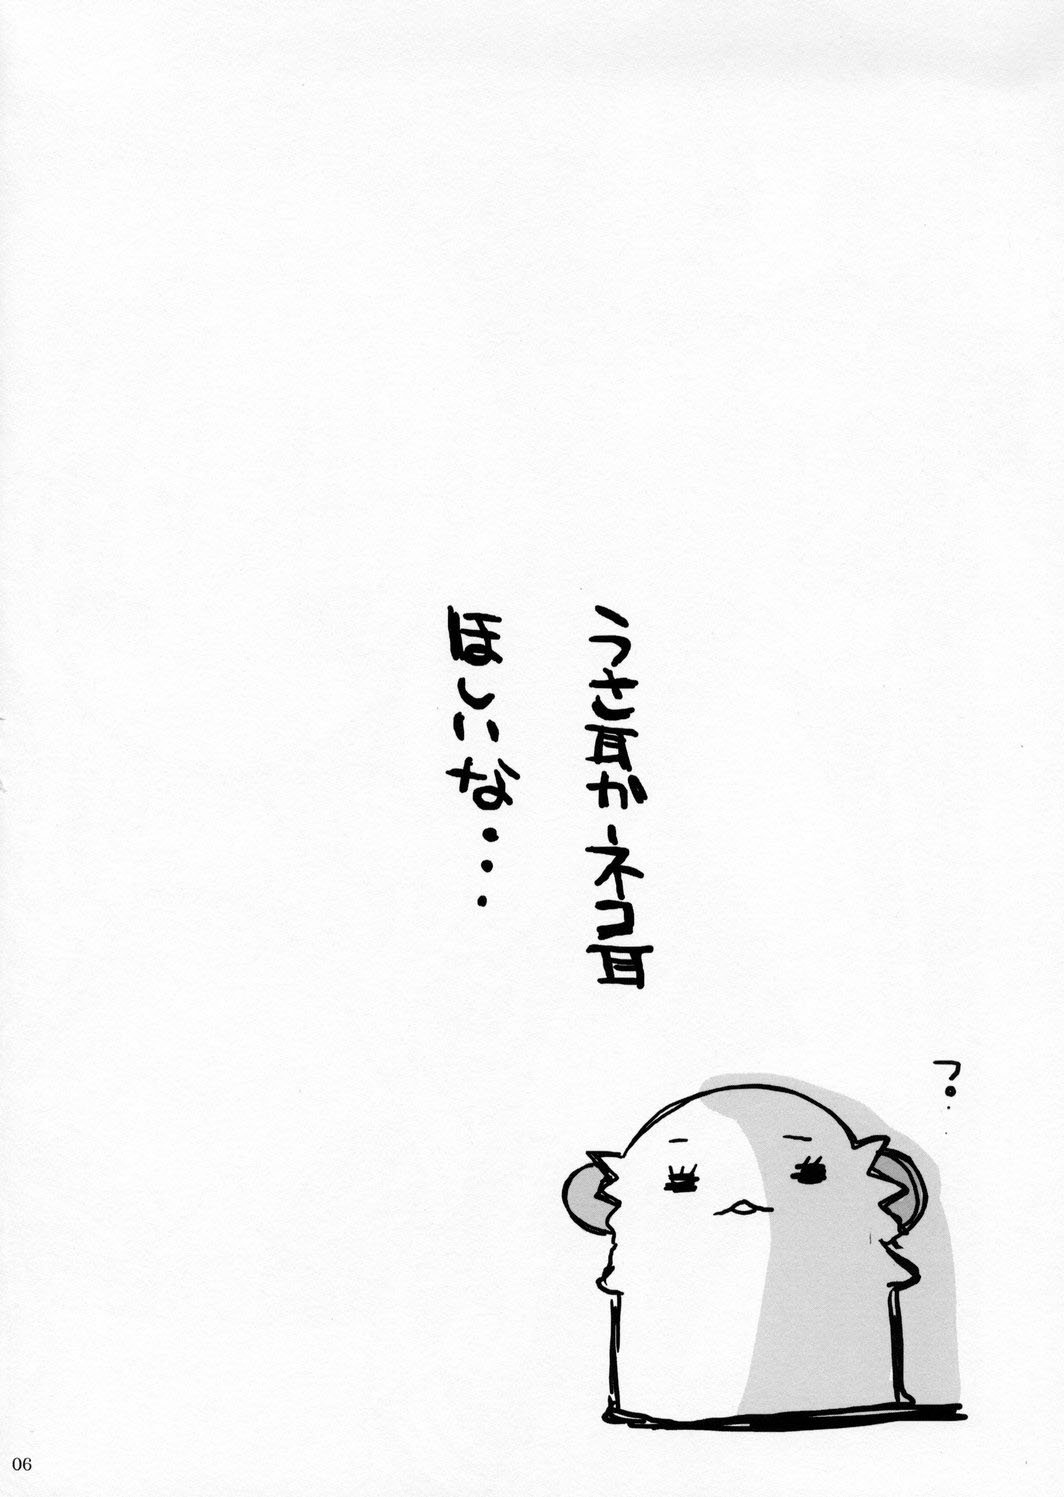 うさ耳かネコ耳
ほしいな・・・
?
06